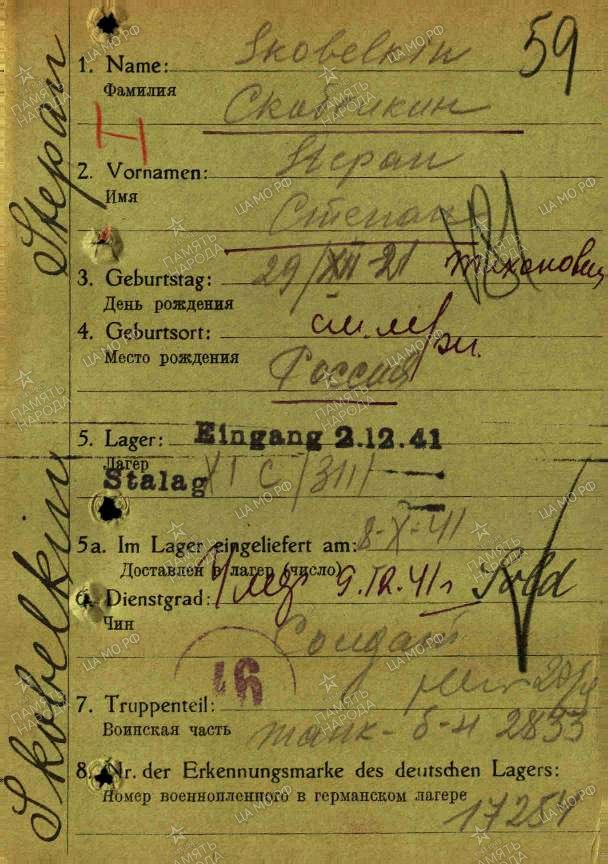 59
1. Name: Skobelkin
Фамилия Скобелкин
H
2. Vornamen: Stepan
Имя Степан
3. Geburtstag: 29/XII-21 Тихонович
День рождения
4. Geburtsort:
Место рождения Россия
5. Lager: Eingang 2.12.41
Лагер
Stalag XI C /311/
5a. Im Lager eingeliefert am: 8-X-41
Доставлен в лагер (число)
6. Dienstgrad: Sold
Чин Солдат
46
7. Truppenteil:
Воинская часть танк-б-н 2833
8. Nr. der Erkennungsmarke des deutschen Lagers:
Номер военнопленного в германском лагере
17254
Skobelkin Stepan
ПАМЯТЬ НАРОДА
ЦАМО.РФ